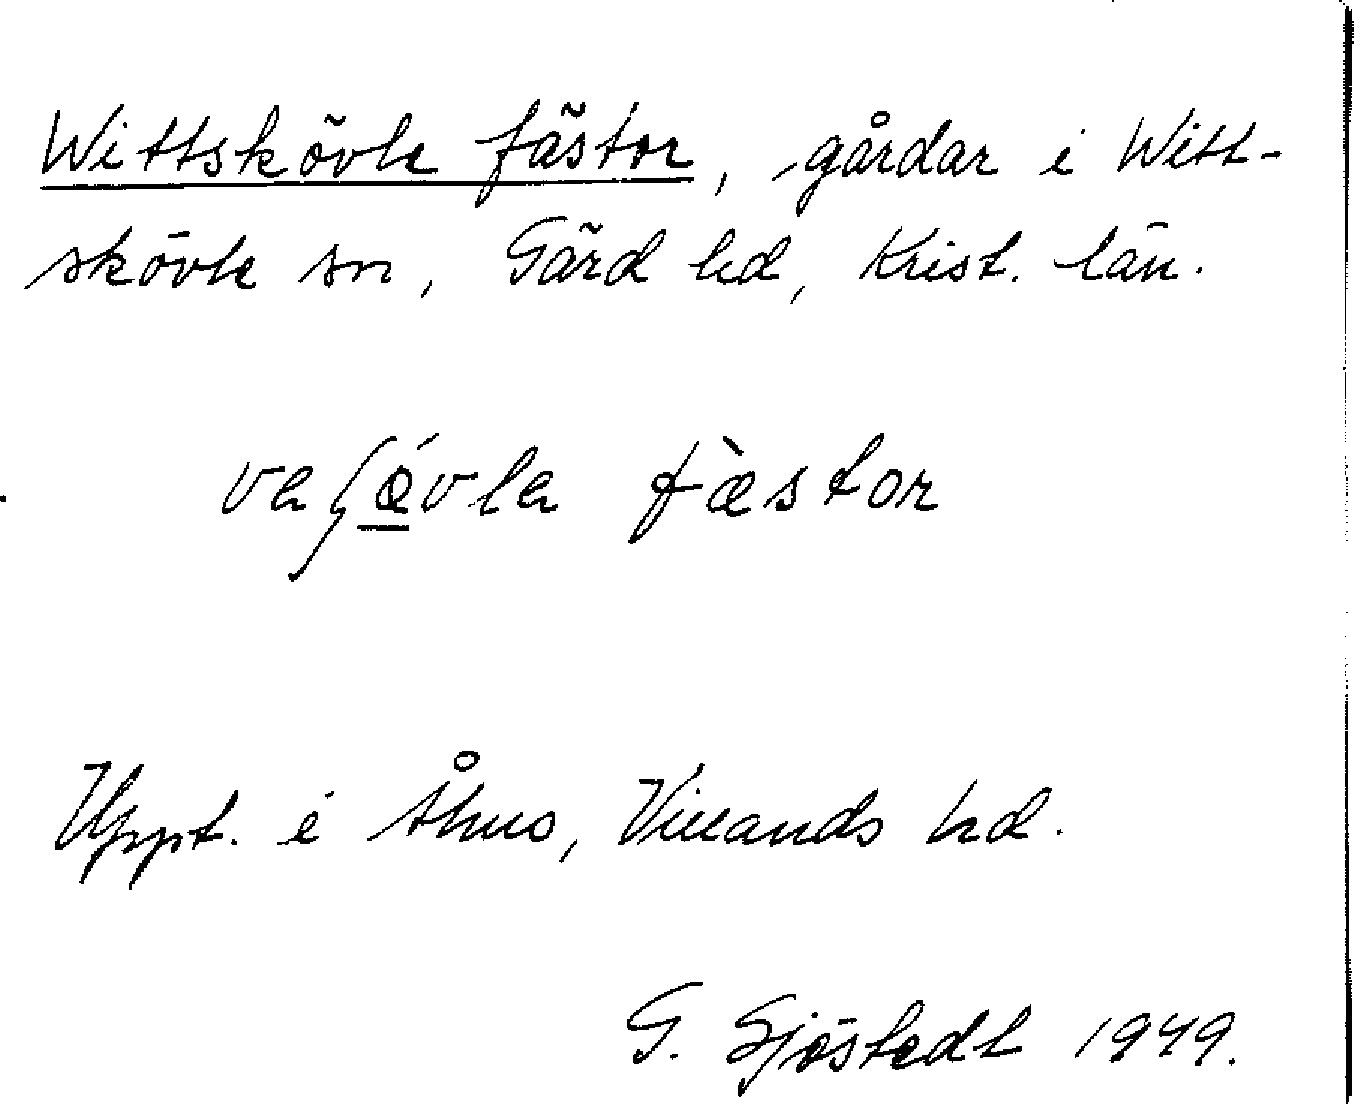 Wittskövle fästor, gårdar i Witt-
skövle sn, Gärd hd, Krist. län.
veʃǿvle fæ̀stor
Uppt. i Åhus, Villands hd.
G. Sjöstedt 1949.